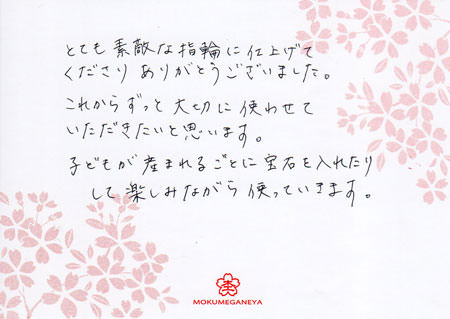 とても素敵な指輪に仕上げて
くださり ありがとうございました。
これからずっと大切に使わせて
いただきたいと思います。
子どもが産まれるごとに宝石を入れたり
して楽しみながら使っていきます。
MOKUMEGANEYA